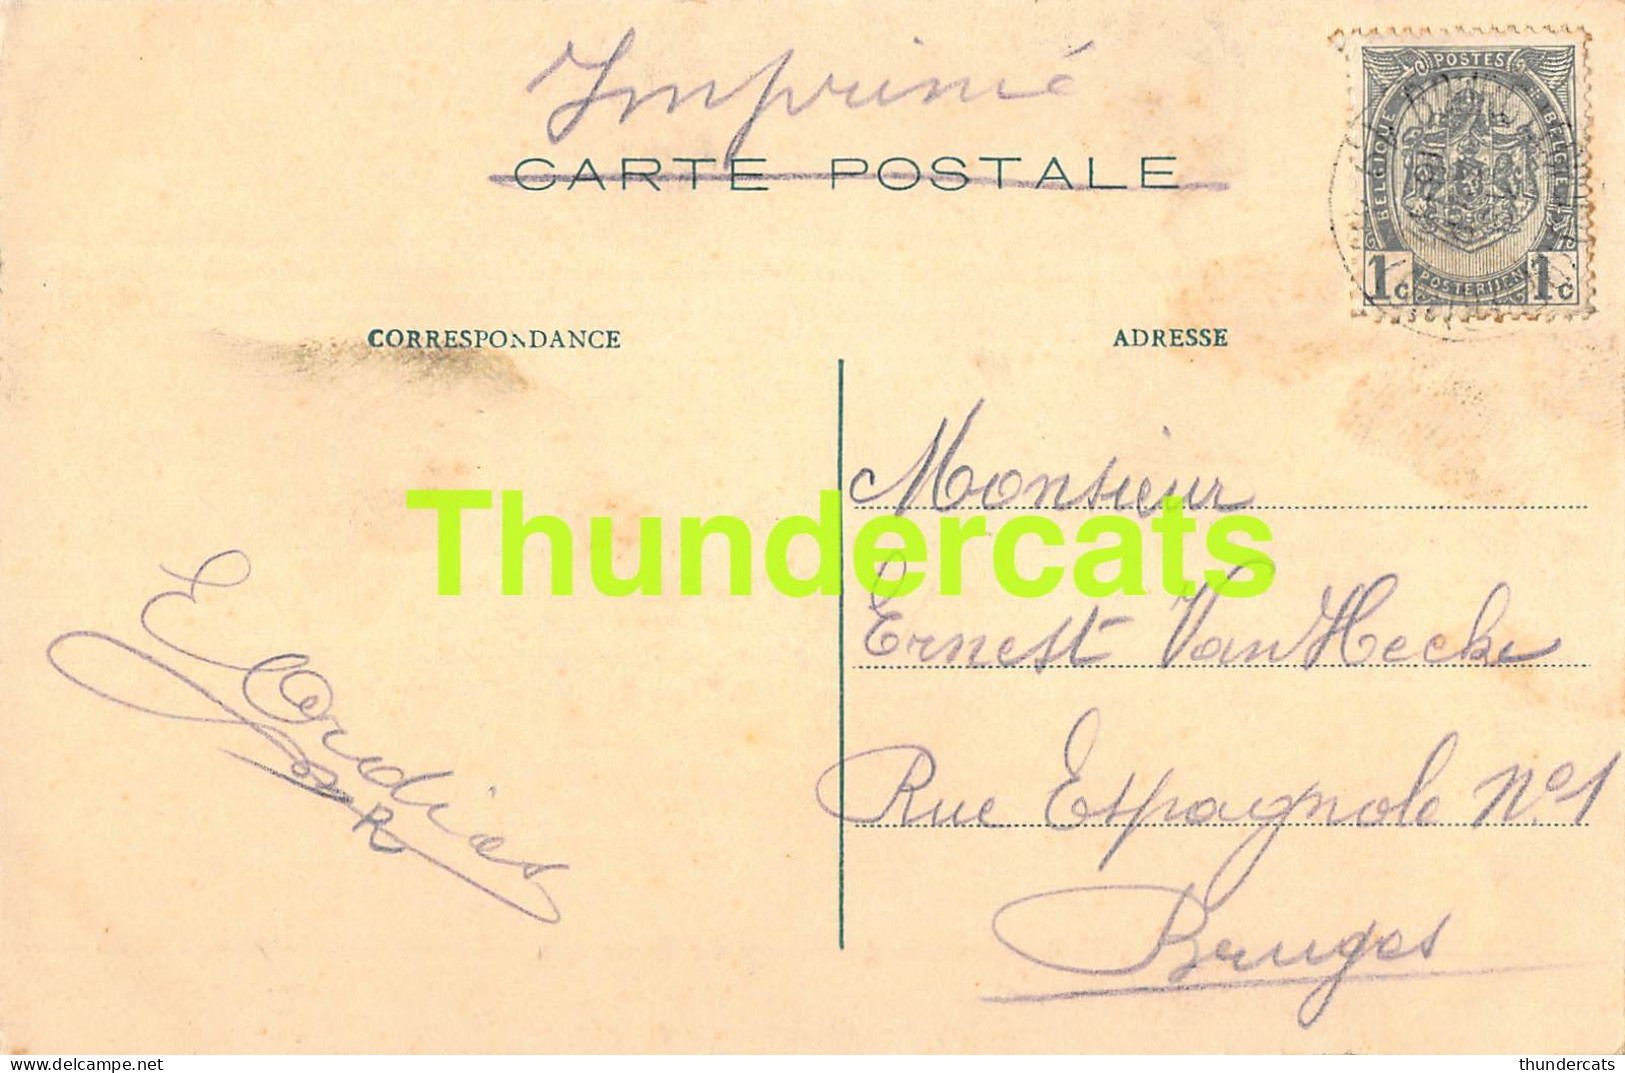 Imprimé
CARTE POSTALE
POSTES
BELGIQUE
BELGIE
1c 1c
POSTERIJEN
CORRESPONDANCE
ADRESSE
Monsieur
Thundercats
Ernest Van Hecke
Rue Espagnole No 1
Bruges
E Cordies
thundercats